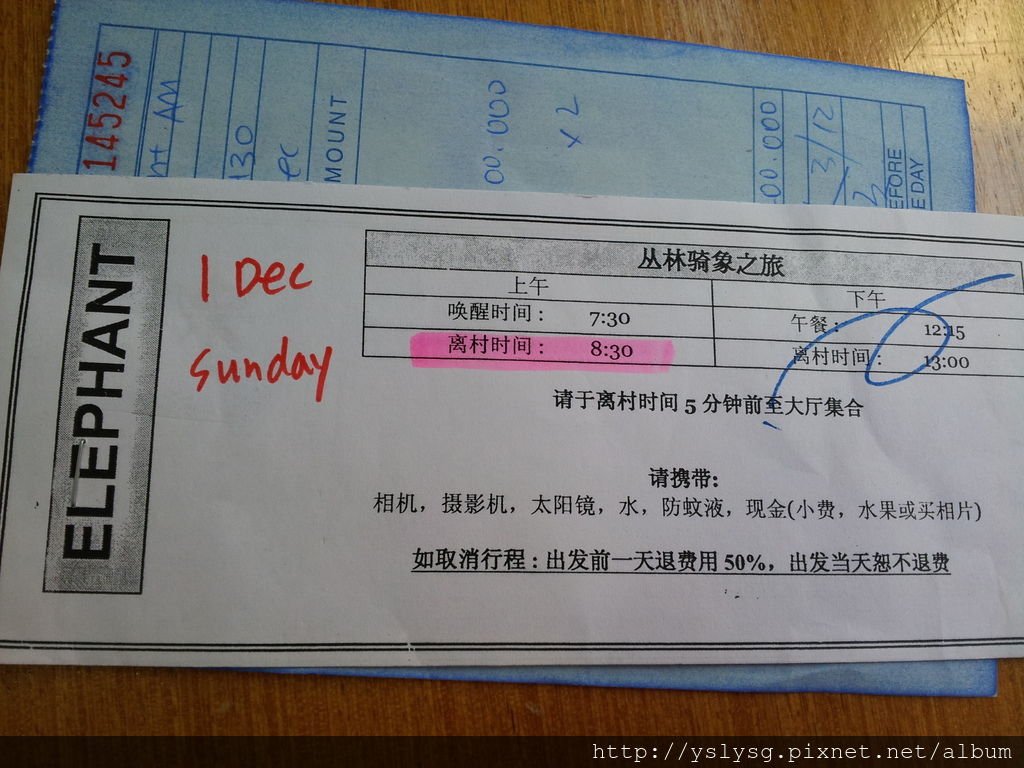 145245
AM
130
ec
MOUNT
00.000
x 2
00.000
3/12
2
EFORE
E DAY
ELEPHANT
1 Dec
Sunday
丛林骑象之旅
上午
下午
唤醒时间： 7:30
午餐： 12:15
离村时间： 8:30
离村时间： 13:00
请于离村时间 5 分钟前至大厅集合
请携带:
相机，摄影机，太阳镜，水，防蚊液，现金(小费，水果或买相片)
如取消行程：出发前一天退费用 50%，出发当天恕不退费
http://yslysg.pixnet.net/album